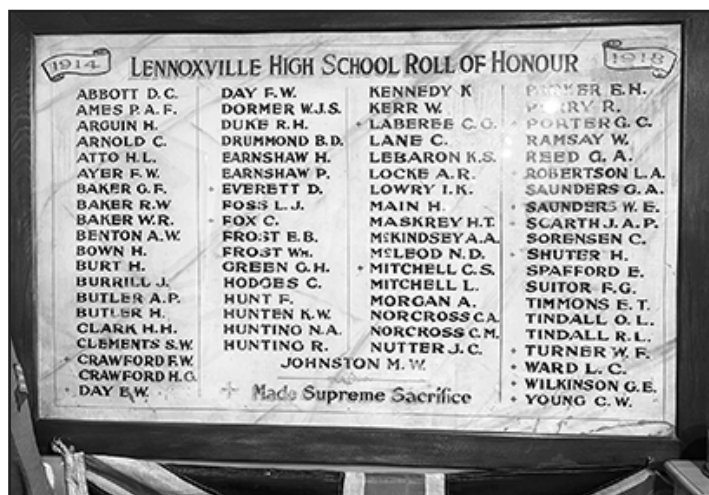 1914 LENNOXVILLE HIGH SCHOOL ROLL OF HONOUR 1918
ABBOTT D.C.
AMES P.A.F.
ARGUIN H.
ARNOLD C.
ATTO H.L.
AYER F.W.
BAKER G.F.
BAKER R.W
BAKER W.R.
BENTON A.W.
BOWN H.
BURT H.
BURRILL J.
BUTLER A.P.
BUTLER H.
CLARK H.H.
CLEMENTS S.W.
+ CRAWFORD F.W.
CRAWFORD H.G.
+ DAY E.W.
DAY F.W.
DORMER W.J.S.
DUKE R.H.
DRUMMOND B.D.
EARNSHAW H.
EARNSHAW P.
+ EVERETT D.
FOSS L.J.
+ FOX C.
FROST E.B.
FROST WM.
GREEN G.H.
HODGES C.
HUNT F.
HUNTEN K.W.
HUNTING N.A.
HUNTING R.
JOHNSTON M.W.
KENNEDY K
KERR W.
+ LABEREE C.G.
LANE C.
LEBARON K.S.
LOCKE A.R.
LOWRY I.K.
MAIN H.
MASKREY H.T.
McKINDSEY A.A.
McLEOD N.D.
+ MITCHELL C.S.
MITCHELL L.
MORGAN A.
NORCROSS C.A.
NORCROSS C.M.
NUTTER J.C.
E.H.
R.
+ PORTER G.C.
RAMSAY W.
REED G.A.
+ ROBERTSON L.A.
SAUNDERS G.A.
+ SAUNDERS W.E.
+ SCARTH J.A.P.
SORENSEN C.
+ SHUTER H.
SPAFFORD E.
SUITOR F.G.
TIMMONS E.T.
TINDALL O.L.
TINDALL R.L.
+ TURNER W.F.
+ WARD L.C.
+ WILKINSON G.E.
+ YOUNG C.W.
+ Made Supreme Sacrifice